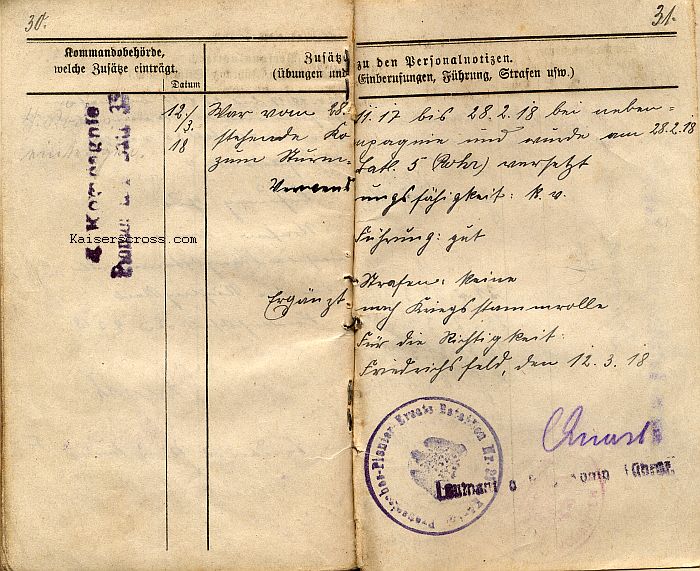 30.
31.
Kommandobehörde,
welche Zusätze einträgt.
Datum
Zusätz zu den Personalnotizen.
(Übungen und Einberufungen, Führung, Strafen usw.)
4 Kompagnie
12./3. 18
War vom 28. 11.17 bis 28.2.18 bei neben=
stehende Kompagnie und wurde am 28.2.18
zum Sturm-Batl. 5 (Rohr) versetzt
Verwendungsfähigkeit: k. v.
Führung: gut
Strafen: keine
Ergänzt nach Kriegsstammrolle
Für die Richtigkeit:
Friedrichsfeld, den 12.3.18
Pionier-Ersatz Bataillon Nr.
Leutnant
KaisersCross.com